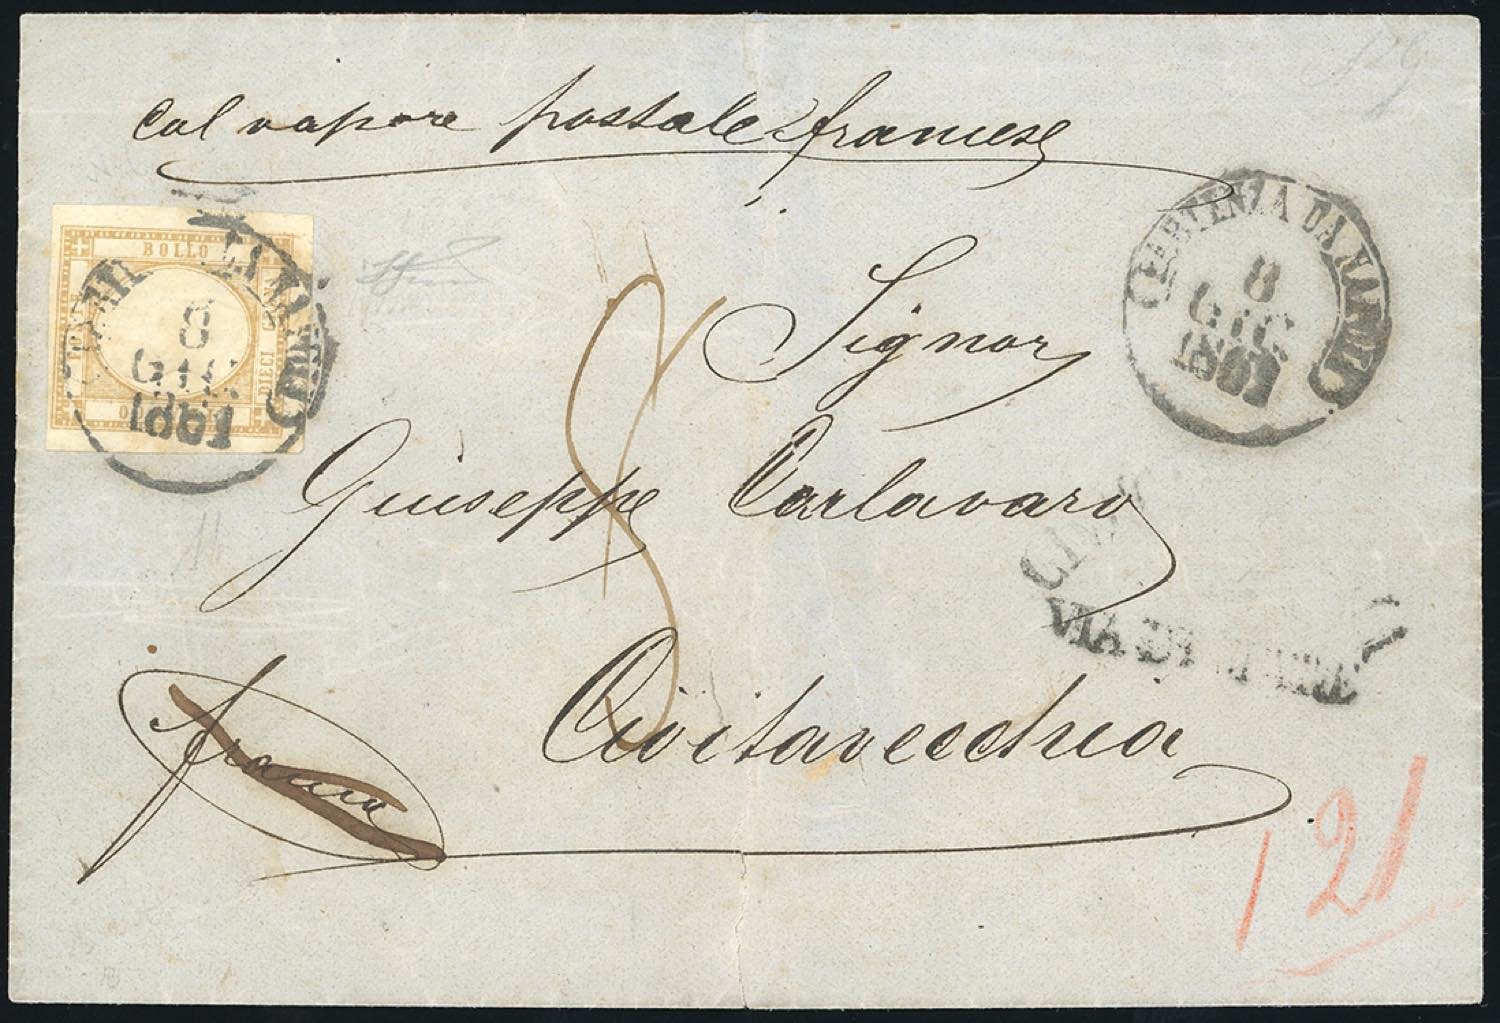 col vapore postale francese
BOLLO
DIECI
8
GIU
1861
PARTENZA DA NAPOLI
8
GIU
1861
8
Signor
Giuseppe Carlavaro
VIA DI MARE
Civitavecchia
franco
121